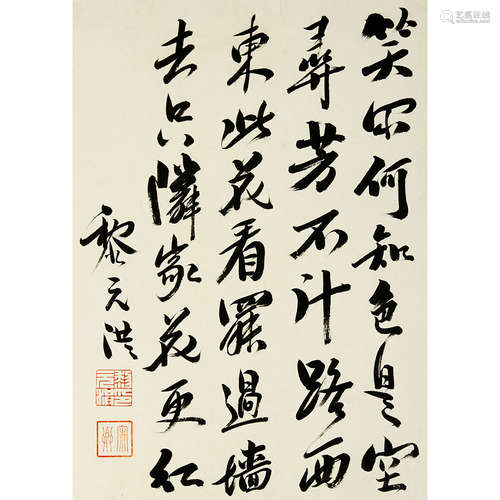 笑何知色是空
尋芳不計路西
東此花看罷過墻
去只隣家花更紅
黎元洪
艺狐在线